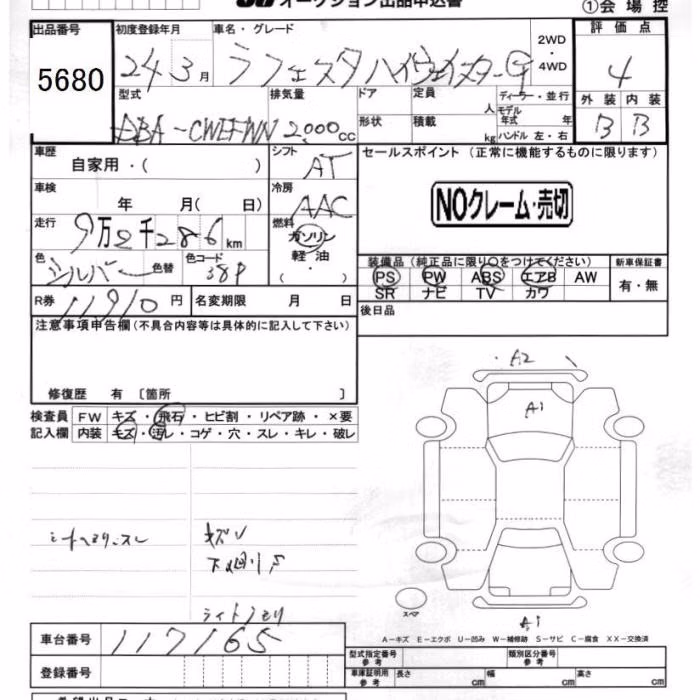 オークション出品申込書
①会場控
出品番号 初度登録年月 車名・グレード 評価点
5680 24 3月 ラフェスタハイウェイスターG 2WD・4WD 4
型式 排気量 ドア 定員 人 ディーラー・並行 外装 内装
DBA-CWEFWN 2000cc 形状 積載 kg モデル年式 年 B B
ハンドル 左・右
車歴 自家用・( ) シフト AT セールスポイント (正常に機能するものに限ります)
車検 年 月( 日) 冷房 AAC NOクレーム・売切
走行 9万2千286km 燃料 ガソリン・軽油・( )
色 シルバー 色替 色コード 38P
装備品 (純正品に限り○をつけてください) 新車保証書
PS PW ABS エアB AW 有・無
SR ナビ TV カワ
R券 11910円 名変期限 月 日 後日品
注意事項申告欄(不具合内容等は具体的に記入して下さい)
修復歴 有 〔箇所 〕
検査員 FW キズ・飛石・ヒビ割・リペア跡・×要
記入欄 内装 キズ・汚レ・コゲ・穴・スレ・キレ・破レ
A2
A1
キズ
下廻りS
ライトクモリ
スペア
A1
A-キズ E-エクボ U-凹み W-補修跡 S-サビ C-腐食 XX-交換済
車台番号 117165
型式指定番号 参考 類別区分番号 参考
登録番号 車庫証明用 参考 長さ cm 幅 cm 高さ cm